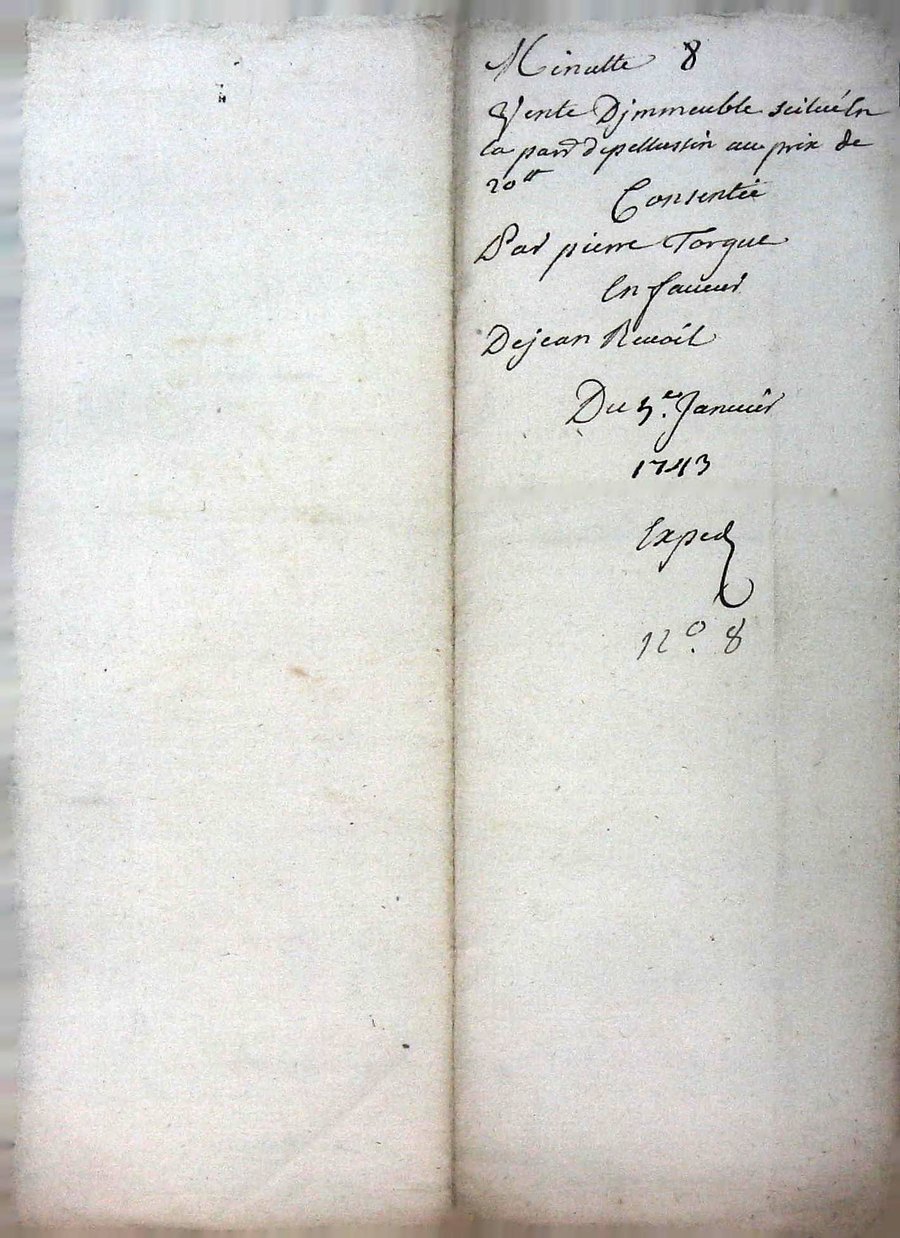 Minutte 8
Vente Djmmeuble scitué en
la parr depellussin au prix de
20tt
Consentie
Par pierre Torgue
En faueur
Dejean Reuoil
Du Janvier
1743
Exped
No. 8